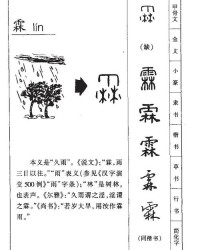 霖 lín
本义是“久雨”。《说文》：“霖，雨
三日以往。”“雨”表义（参见《汉字演
变500例》“雨”字条）；“林”是树林，
也表声。《尔雅》：“久雨谓之淫，淫谓
之霖。”《尚书》：“若岁大旱，用汝作霖
雨。”
甲骨文
金文
小篆
隶书
楷书
草书
行书
简化字
霖
霖
（同楷书）